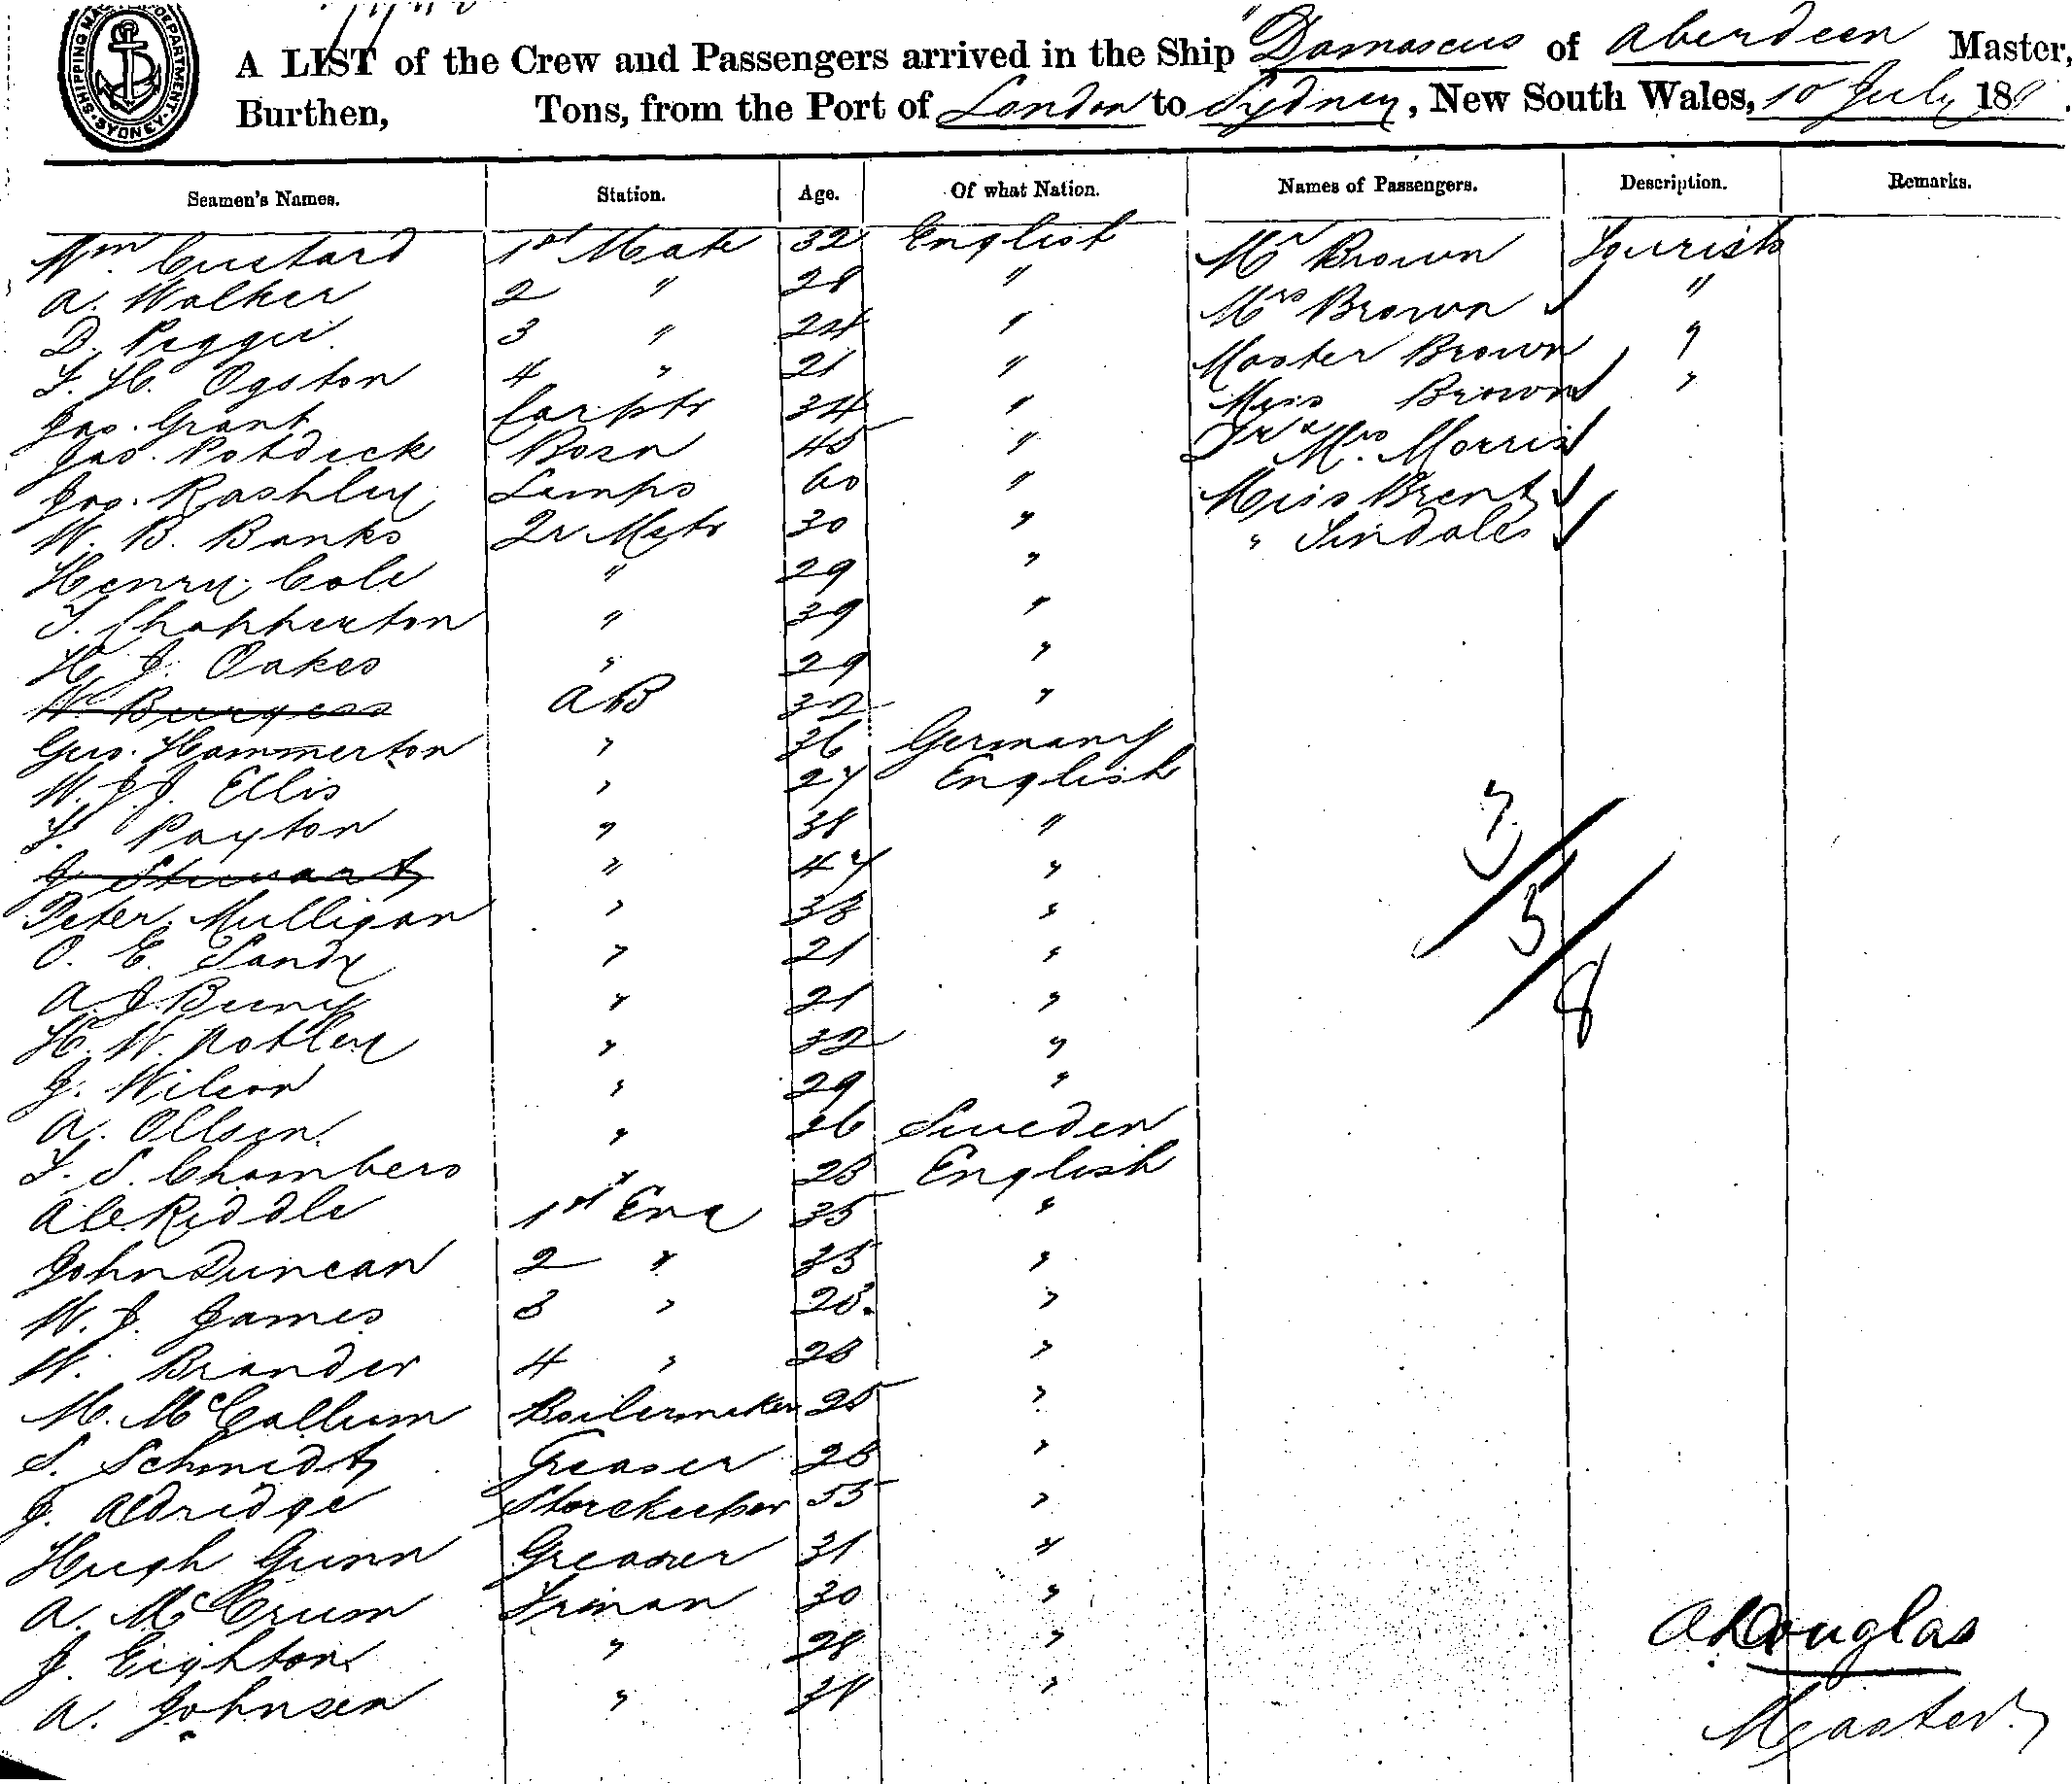 SHIPPING MASTER'S DEPARTMENT SYDNEY
A LIST of the Crew and Passengers arrived in the Ship "Damascus of Aberdeen Master,
Burthen, Tons, from the Port of London to Sydney, New South Wales, 10 July 18
Seamen's Names. Station. Age. Of what Nation. Names of Passengers. Description. Remarks.
Wm. Custard 1st Mate 32 English Mr Brown Tourists
A. Walker 2 " 28 " Mrs Brown "
D. Peggie 3 " 24 " Master Brown "
F. H. Ogston 4 " 21 " Miss Brown "
Jas. Grant Carptr 34 " Dr & Mrs. Morris
Jas. Potdick Bosn 45 " Miss Brent
Jas. Rashley Lamps 60 " " Tindale
W. B. Banks Qr Mstr 30 "
Henry Cole " 29 "
T. Chapperton " 39 "
H. J. Oakes " 29 "
W. Burgess AB 32 "
Geo. Hammerton " 36 Germany
W. J. J. Ellis " 27 English
F. Payton " 38 "
J. Stewart " 47 "
Peter Mulligan " 38 "
O. E. Sandy " 21 "
A. J. " 21 "
H. W. Notley " 32 "
J. Wilson " 29 "
A. Ollsen " 26 Sweden
F. S. Chambers " 28 English
Alc Riddle 1st Eng 35 "
John Duncan 2 " 35 "
W. J. James 3 " 28 "
W. Brander 4 " 28 "
M. McCallum Boilermaker 25 "
S. Schmidt Greaser 28 "
J. Aldridge Storekeeper 55 "
Hugh Gunn Greaser 31 "
A. McCrum Firman 30 "
J. Eighton " 28 "
A. Johnsen " 38 "
3
5
8
A Douglas
Master